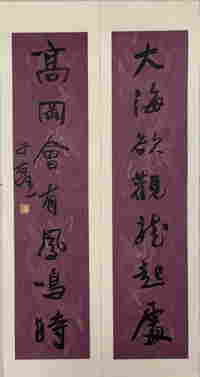 大海欲觀龍起處
高岡會有鳳鳴時